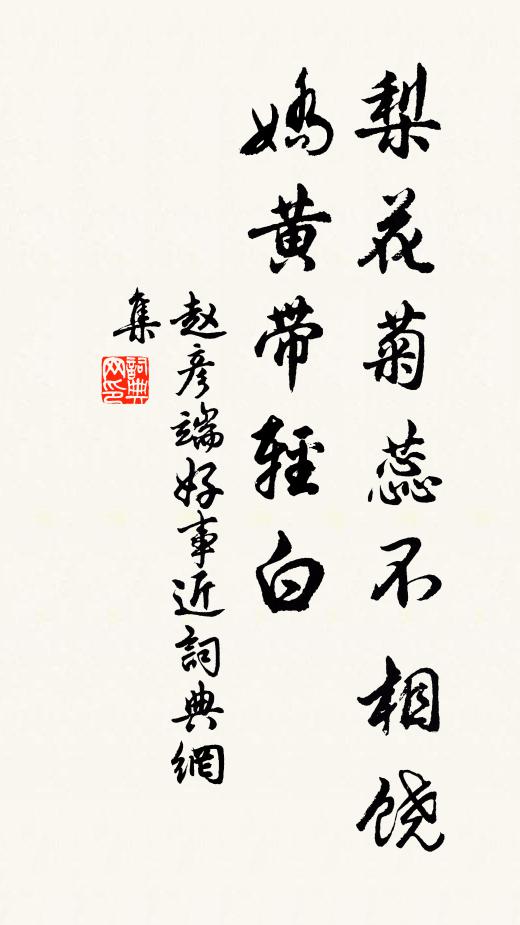 梨花菊蕊不相饶
嬌黄带輕白
赵彦端好事近詞典網
集
詞典网印